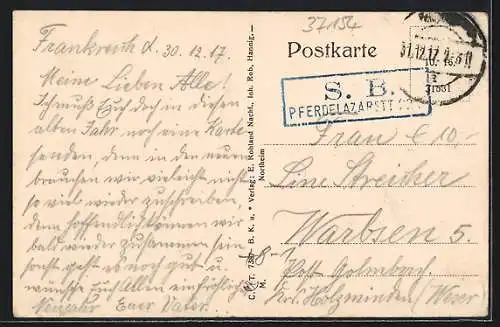 37154
Frankreich d. 30.12.17.
Meine Lieben Alle!
Ich muß Euch doch in diesem
alten Jahr noch eine Karte
senden, denn in den neuen
brauchen wir vielleicht nicht
so viel wieder zuschreiben,
denn hoffendlich können wir
bald wieder zusammen sein
sonst geht es noch gut u.
wünsche Euch Allen ein fröhliches
Neujahr Euer Vater.
C. T. M. 738 B. K. u. * Verlag: E. Rohland Nachf., Inh. Rob. Hannig.
Northeim
Postkarte
31.12.17.
S. B.
PFERDELAZARETT
Frau
Line Streicher
Warbsen 5.
Post Golmbach
Kr. Holzminden (Weser)